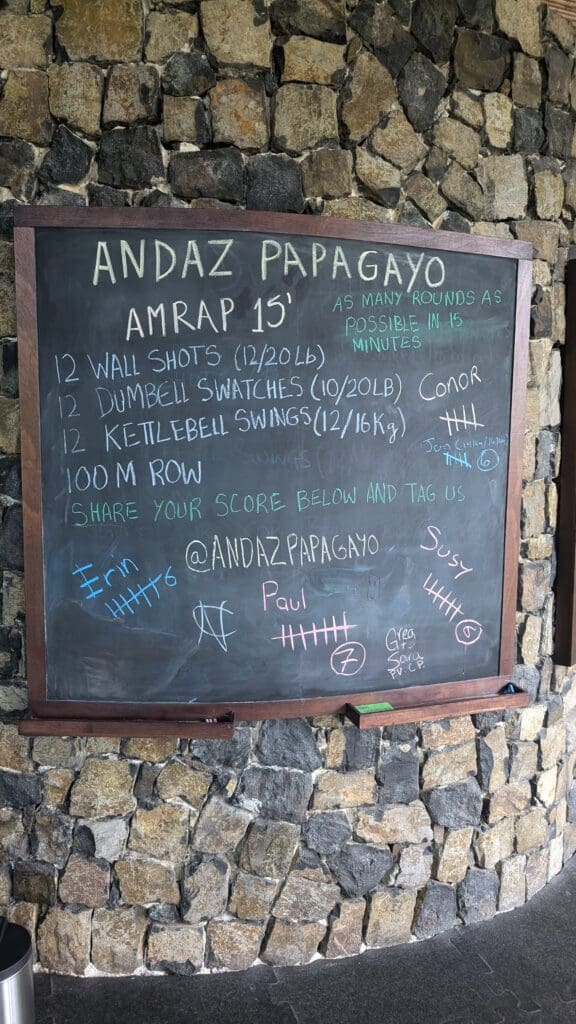 ANDAZ PAPAGAYO
AMRAP 15'
AS MANY ROUNDS AS
POSSIBLE IN 15
MINUTES
12 WALL SHOTS (12/20Lb)
12 DUMBELL SWATCHES (10/20LB)
12 KETTLEBELL SWINGS (12/16Kg)
100 M ROW
CONOR
6
SHARE YOUR SCORE BELOW AND TAG US
@ANDAZPAPAGAYO
Erin
6
Paul
7
Susy
Sara